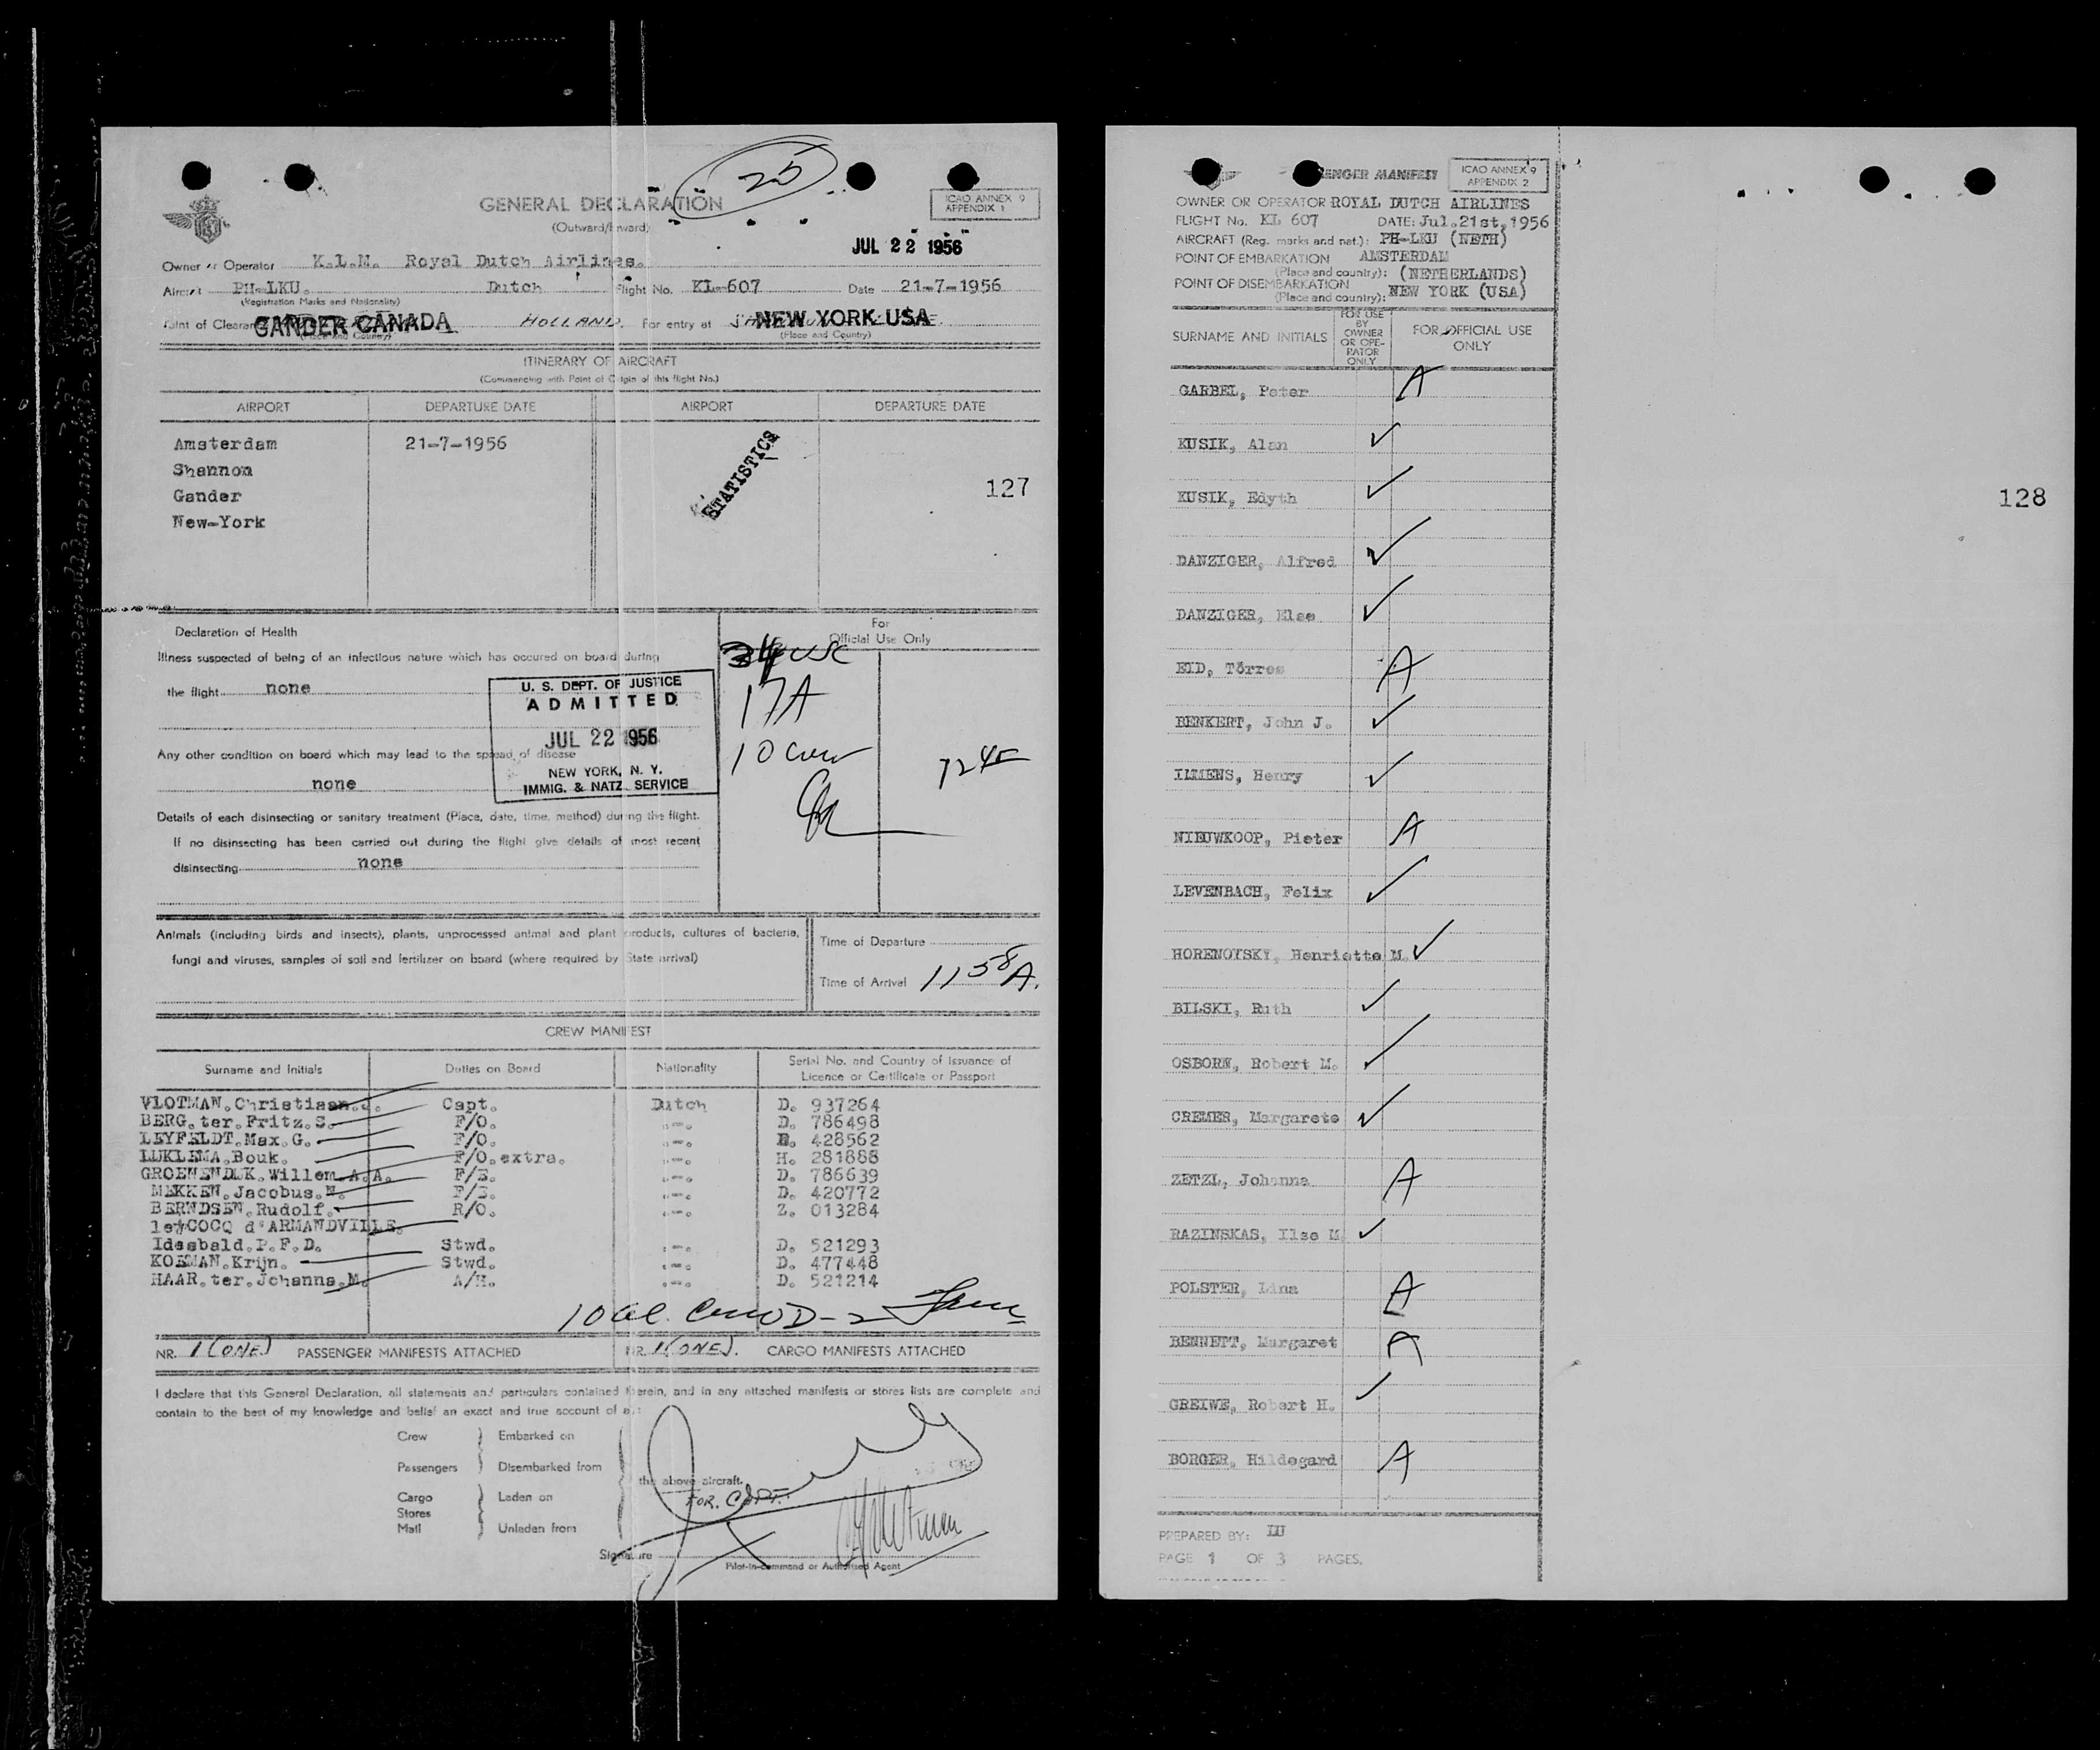 25
GENERAL DECLARATION
(Outward/Inward)
ICAO ANNEX 9
APPENDIX 1
JUL 22 1956
Owner or Operator K.L.M. Royal Dutch Airlines.
Aircraft PH-LKU. Dutch Flight No. KL-607 Date 21-7-1956
(Registration Marks and Nationality)
Point of Clearance GANDER CANADA HOLLAND. For entry at NEW YORK USA
(Place and Country) (Place and Country)
ITINERARY OF AIRCRAFT
(Commencing with Point of Origin of this flight No.)
AIRPORT DEPARTURE DATE AIRPORT DEPARTURE DATE
Amsterdam 21-7-1956
Shannon
Gander
New-York
STATISTICS
127
Declaration of Health
For
Official Use Only
Illness suspected of being of an infectious nature which has occured on board during
the flight none
34 USC
17A
10 crew
7245
U. S. DEPT. OF JUSTICE
ADMITTED
JUL 22 1956
NEW YORK, N. Y.
IMMIG. & NATZ. SERVICE
Any other condition on board which may lead to the spread of disease
none
Details of each disinsecting or sanitary treatment (Place, date, time, method) during the flight.
If no disinsecting has been carried out during the flight give details of most recent
disinsecting none
Animals (including birds and insects), plants, unprocessed animal and plant products, cultures of bacteria,
fungi and viruses, samples of soil and fertilizer on board (where required by State arrival)
Time of Departure
Time of Arrival 1158A.
CREW MANIFEST
Surname and Initials Duties on Board Nationality Serial No. and Country of Issuance of
Licence or Certificate or Passport
VLOTMAN.Christiaan.J. Capt. Dutch D. 937264
BERG.ter.Fritz.S. F/O. "-". D. 786498
LEYFELDT.Max.G. F/O. "-". 428562
LUKLEMA.Bouk. F/O.extra. "-". H. 281888
GROENENDIJK.Willem.A.A. F/E. "-". D. 786639
MEKKEN.Jacobus.N. F/E. "-". D. 420772
BERNDSEN.Rudolf. R/O. "-". Z. 013284
le COCQ d'ARMANDVILLE.
Idesbald.P.F.D. Stwd. "-". D. 521293
KOEMAN.Krijn. Stwd. "-". D. 477448
HAAR.ter.Johanna.M. A/H. "-". D. 521214
10 al. Crew D-2
NR. 1 (ONE) PASSENGER MANIFESTS ATTACHED NR. 1 (ONE). CARGO MANIFESTS ATTACHED
I declare that this General Declaration, all statements and particulars contained therein, and in any attached manifests or stores lists are complete and
contain to the best of my knowledge and belief an exact and true account of all:
Crew Embarked on
Passengers Disembarked from
the above aircraft.
Cargo Laden on
FOR. CAPT.
Stores
Mail Unladen from
Signature
Pilot-in-command or Authorised Agent
PASSENGER MANIFEST
ICAO ANNEX 9
APPENDIX 2
OWNER OR OPERATOR ROYAL DUTCH AIRLINES
FLIGHT No. KL 607 DATE: Jul.21st,1956
AIRCRAFT (Reg. marks and nat.): PH-LKU (NETH)
POINT OF EMBARKATION AMSTERDAM
(Place and country): (NETHERLANDS)
POINT OF DISEMBARKATION
(Place and country): NEW YORK (USA)
SURNAME AND INITIALS FOR USE BY OWNER OR OPE-RATOR ONLY FOR OFFICIAL USE ONLY
GARBEL, Peter A
KUSIK, Alan ✓
KUSIK, Edyth ✓
128
DANZIGER, Alfred ✓
DANZIGER, Else ✓
EID, Törres A
BENKERT, John J. ✓
ILMENS, Henry ✓
NIEUWKOOP, Pieter A
LEVENBACH, Felix ✓
HORENOTSKY, Henriette M. ✓
BILSKI, Ruth ✓
OSBORN, Robert M. ✓
CREMER, Margarete ✓
ZETZL, Johanna A
RAZINSKAS, Ilse M ✓
POLSTER, Lina A
BENNETT, Margaret A
GREIWE, Robert H. ✓
BORGER, Hildegard A
PREPARED BY: LU
PAGE 1 OF 3 PAGES.